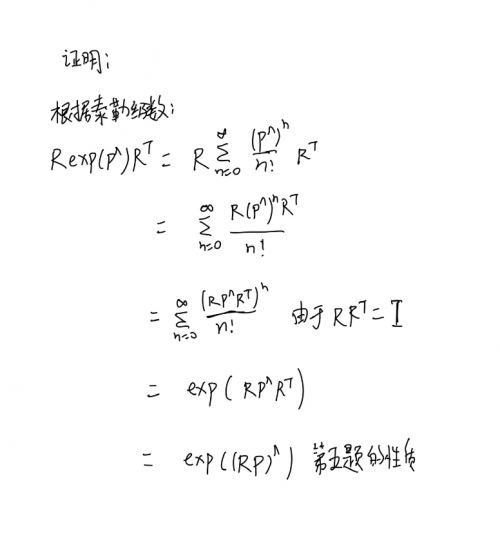 证明;
根据泰勒级数;
R exp(p^)Rᵀ = R ∑_{n=0}^{∞} (p^)ⁿ/n! Rᵀ
= ∑_{n=0}^{∞} R(p^)ⁿRᵀ/n!
= ∑_{n=0}^{∞} (Rp^Rᵀ)ⁿ/n! 由于 RRᵀ = I
= exp(Rp^Rᵀ)
= exp((Rp)^) 第五题的性质